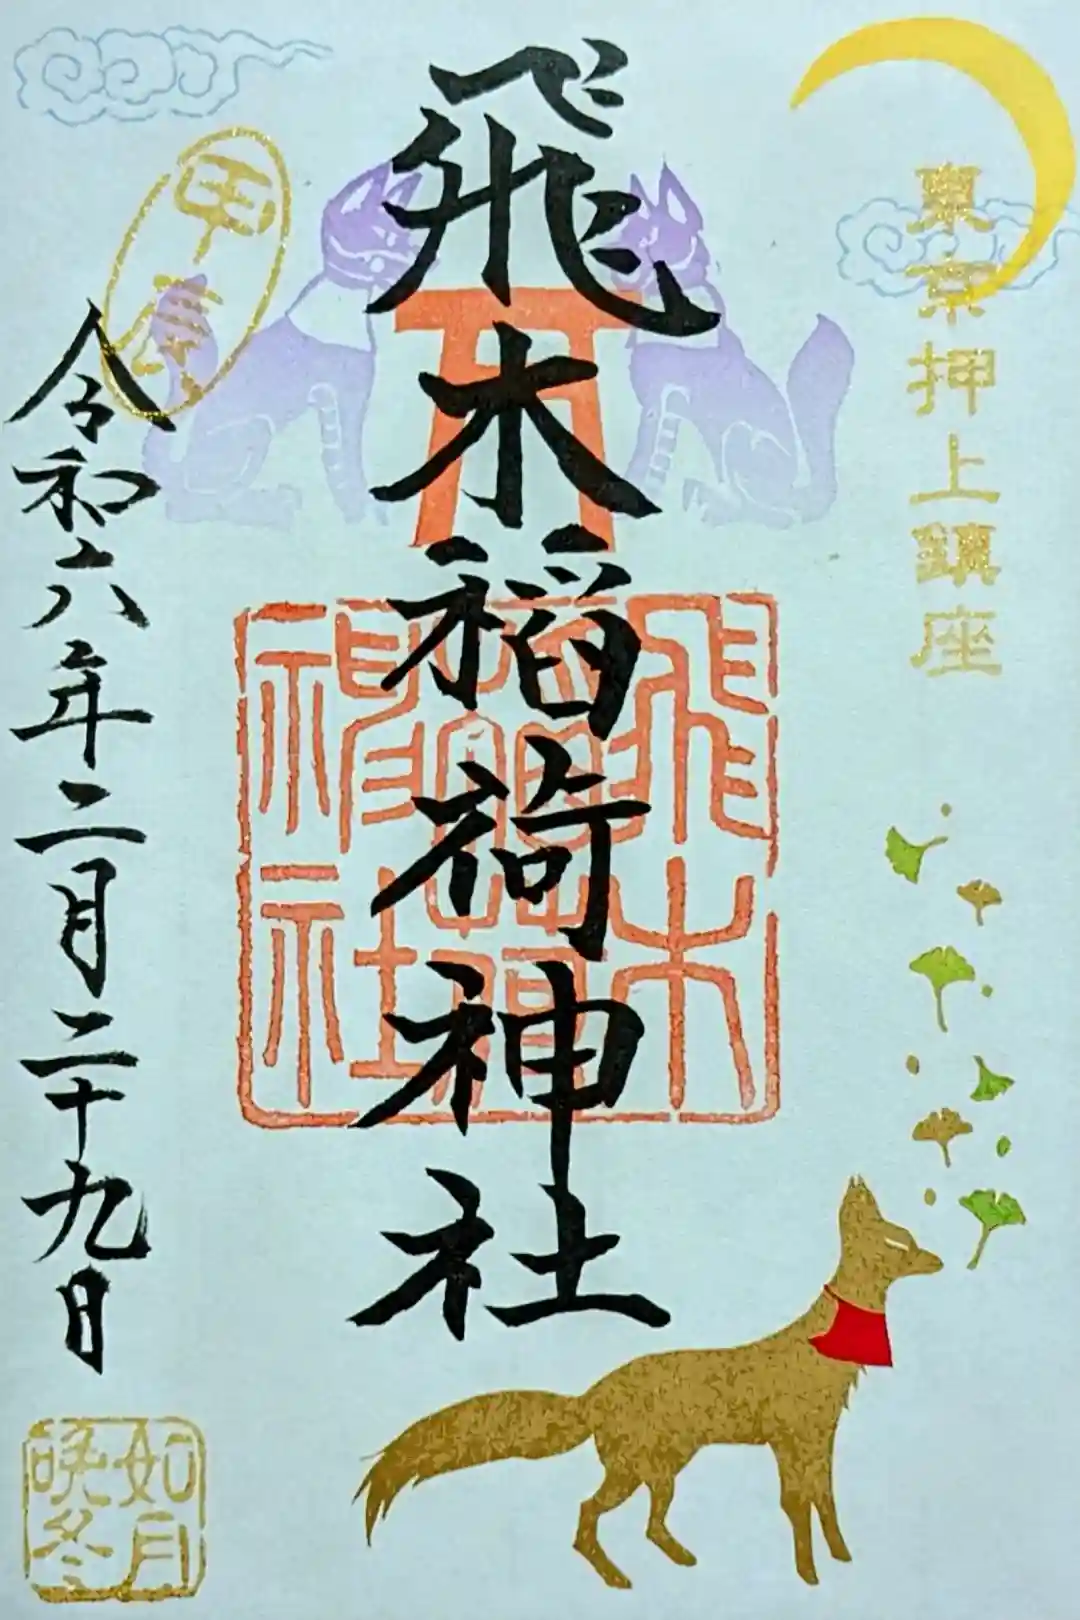 東京押上鎮座
飛木稲荷神社
飛木
稲荷
神社
甲辰
令和六年二月二十九日
如月
晩冬